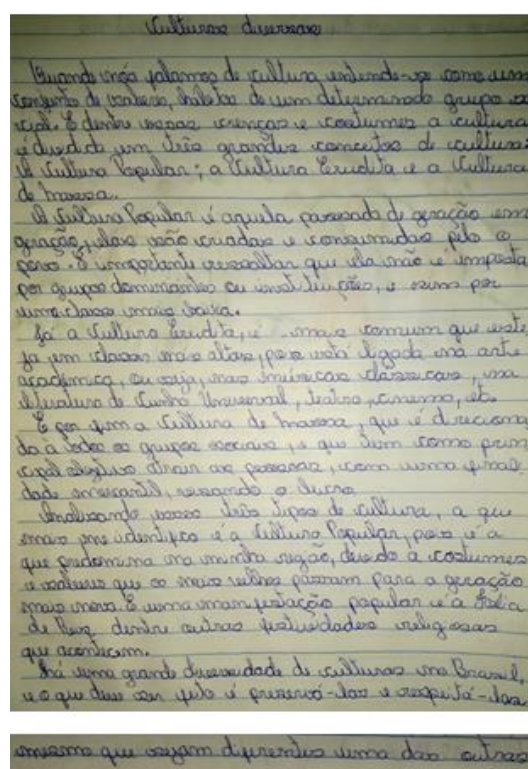 Culturas diversas
Quando nós falamos de cultura entende-se como um
conjunto de saberes, hábitos de um determinado grupo so
cial. E dentre essas crenças e costumes a cultura
é dividida em três grandes conceitos de cultura:
A Cultura Popular; a Cultura Erudita e a Cultura
de massa.
A Cultura Popular é aquela passada de geração em
geração, elas são criadas e consumidas pelo o
povo. É importante ressaltar que ela não é imposta
por grupos dominantes ou instituições, e sim por
uma classe mais baixa.
Já a Cultura Erudita, é mais comum que este
ja em classes mais altas, pois está ligada na arte
acadêmica, ou seja, nas músicas clássicas, na
literatura de Cunho Universal, teatro, cinema, etc.
E por fim a Cultura de massa, que é direciona
da à todos os grupos sociais, e que tem como prin
cipal objetivo atrair as pessoas, com uma finali
dade mercantil, visando o lucro.
Analisando esses três tipos de cultura, a que
mais me identifico é a Cultura Popular, pois é a
que predomina na minha região, devido à costumes
e saberes que os mais velhos passam para a geração
mais nova. E uma manifestação popular é a Folia
de Reis dentre outras festividades religiosas
que acontecem.
Há uma grande diversidade de culturas no Brasil,
e o que deve ser feito é preservá-las e respeitá-las
mesmo que sejam diferentes uma das outras